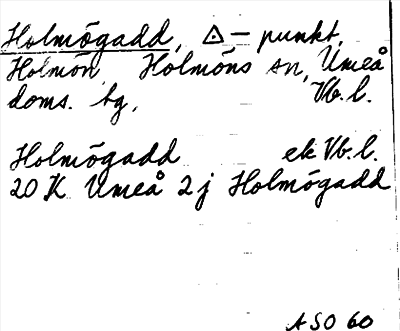 Holmögadd, △ – punkt,
Holmön, Holmöns sn, Umeå
doms. tg, Vb. l.
Holmögadd ek Vb. l.
20 K Umeå 2 j Holmögadd
ASO 60